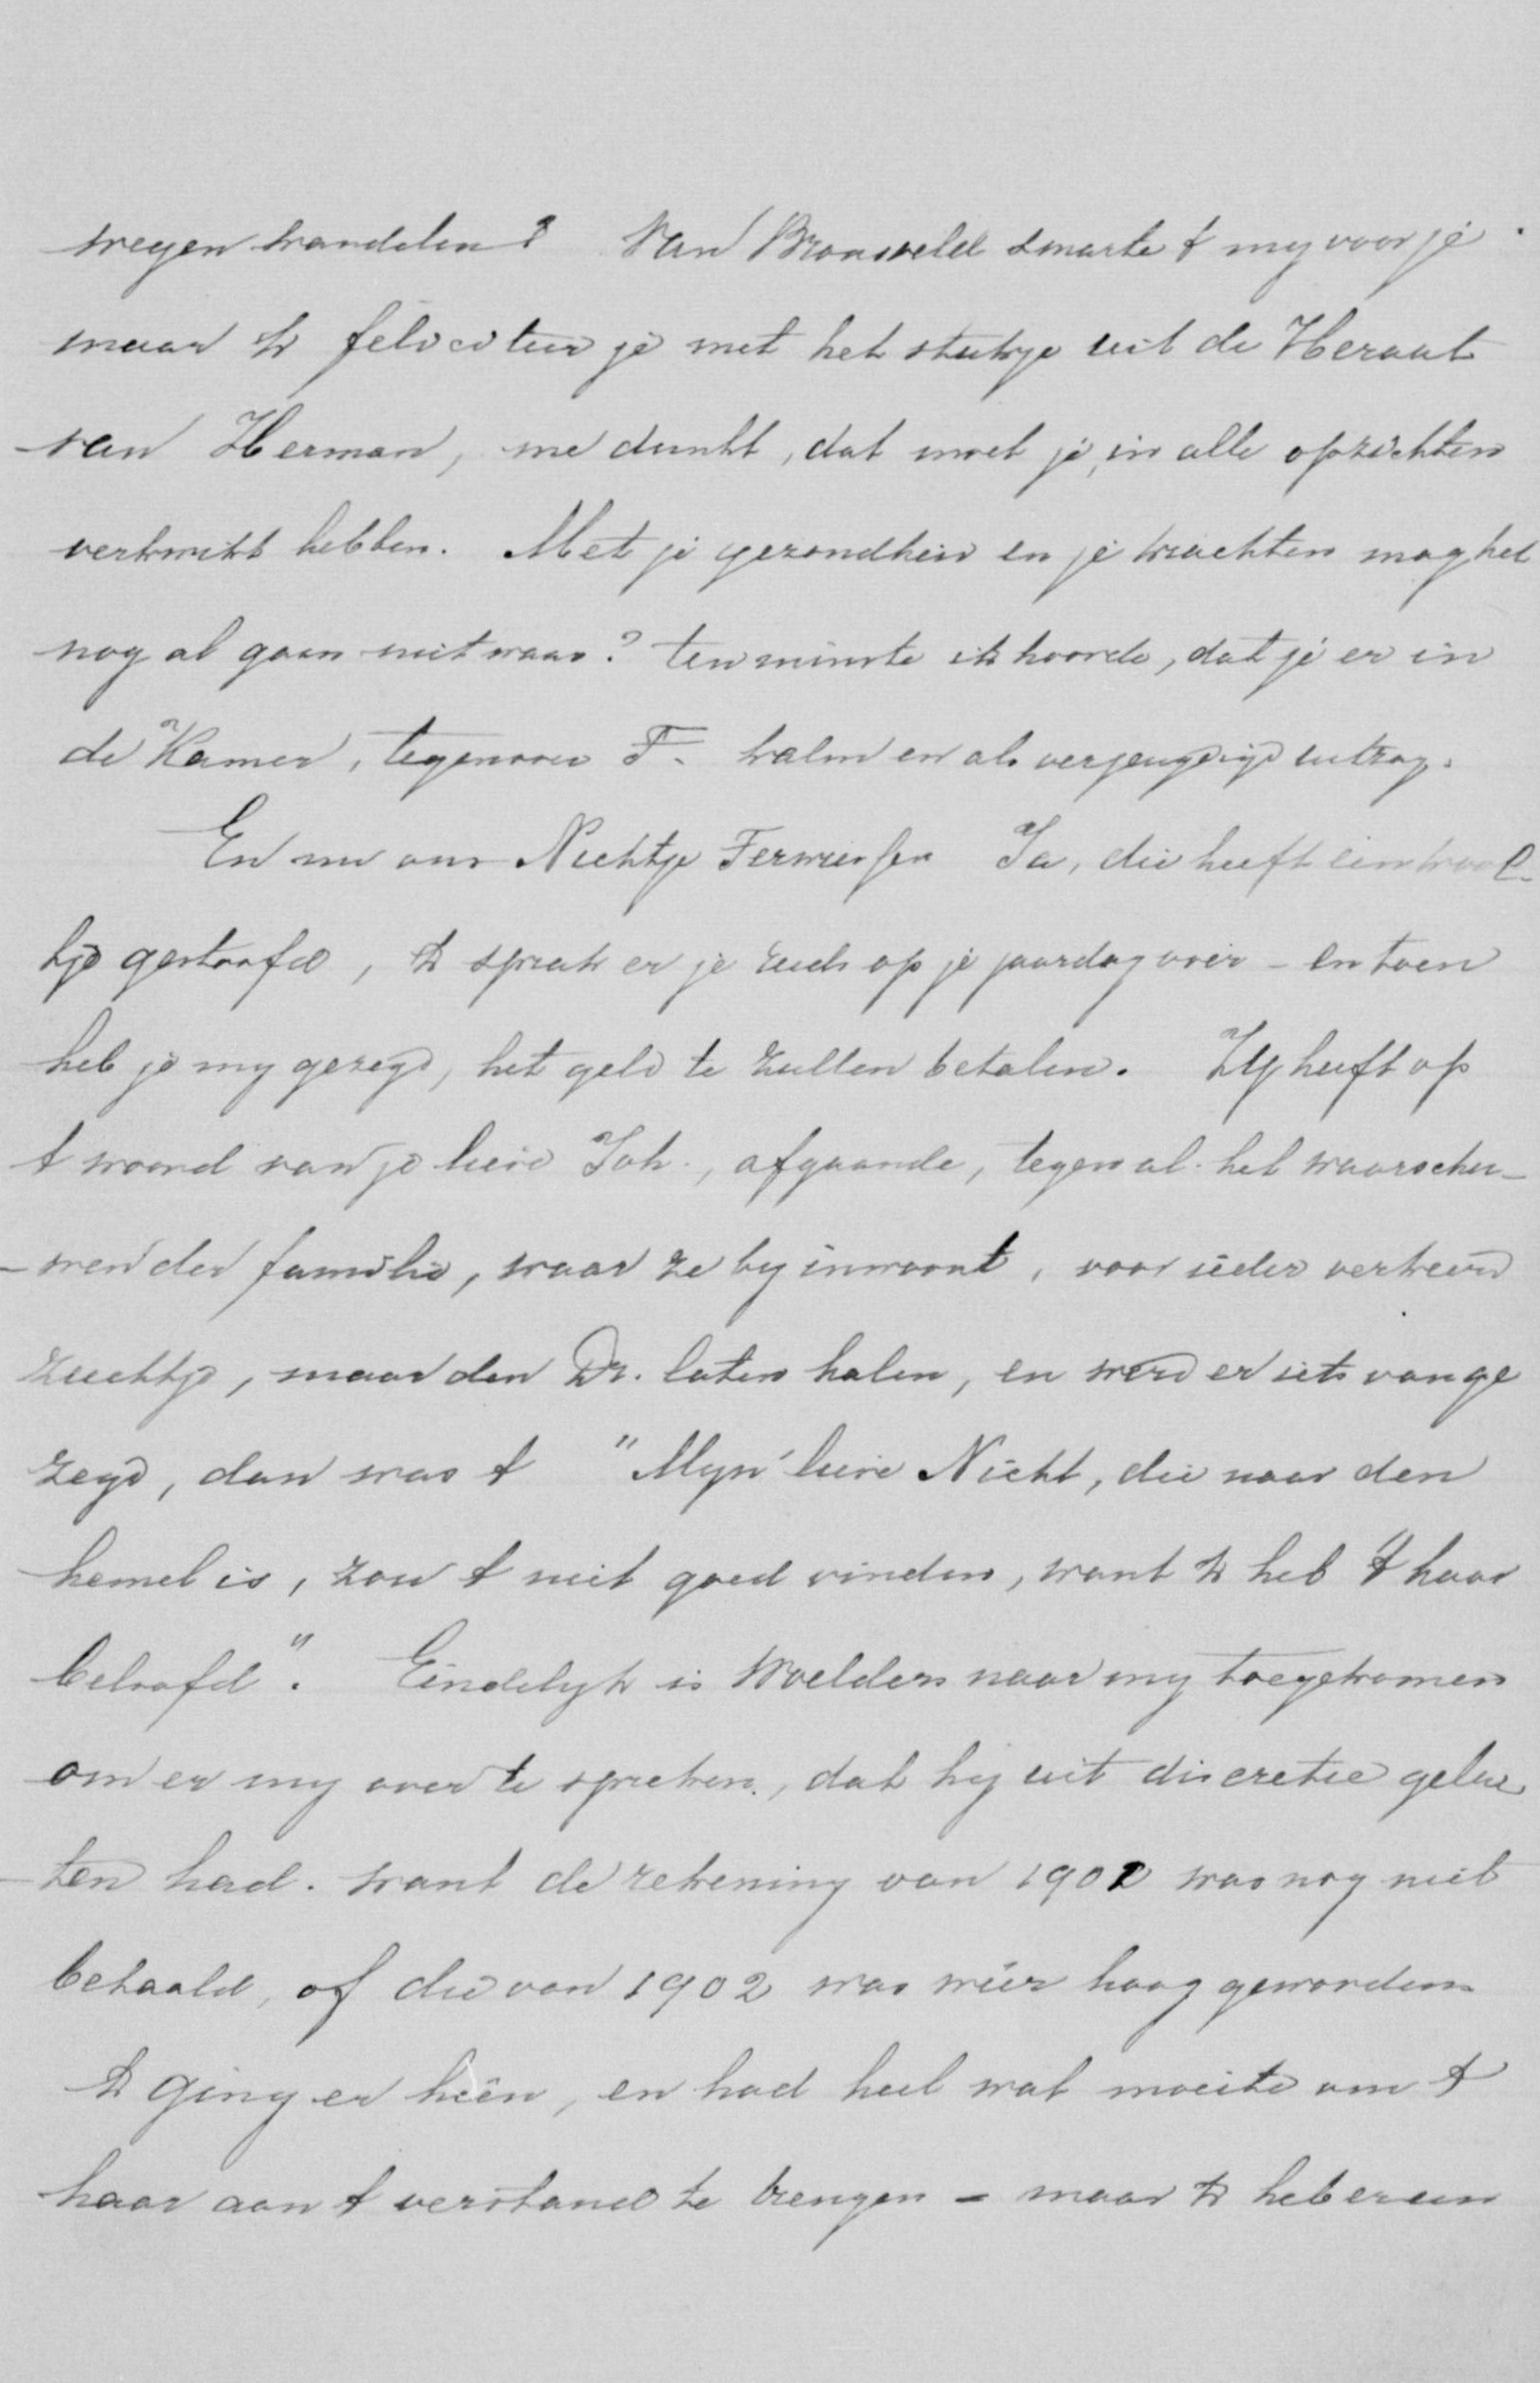 wegen wandelen? Van Bronsveld smarte 't my voor je.
maar 'k feliciteer je met het stukje uit de Heraut
van Herman, me dunkt, dat moet je, in alle opzichten
verkwikt hebben. Met je gezondheid en je krachten mag het
nog al gaan niet waar? ten minste ik hoorde, dat je er in
de Kamer, tegenover T. kalm en als verjeugdigd uitzag.
En nu ons Nichtje Ja, die heeft een kool-
tje gestoofd, 'k sprak er je reeds op je jaardag over – en toen
heb je my gezegd, het geld te zullen betalen. Zy heeft op
't woord van je lieve Joh., afgaande, tegen al het waarschu-
-wen der familie, waar ze by inwoont, voor ieder verkeerd
zuchtje, maar den Dr. laten halen, en werd er iets van ge
zegd, dan was 't "Myn lieve Nicht, die naar den
hemel is, zou 't niet goed vinden, want 'k heb 't haar
beloofd". Eindelyk is Woelders naar my toegekomen
om er my over te spreken, dat hij uit discretie gela
-ten had. want de rekening van 1901 was nog niet
betaald, of die van 1902 was wéér hoog geworden
'k ging er heên, en had heel wat moeite om 't
haar aan 't verstand te brengen – maar 'k heb er een